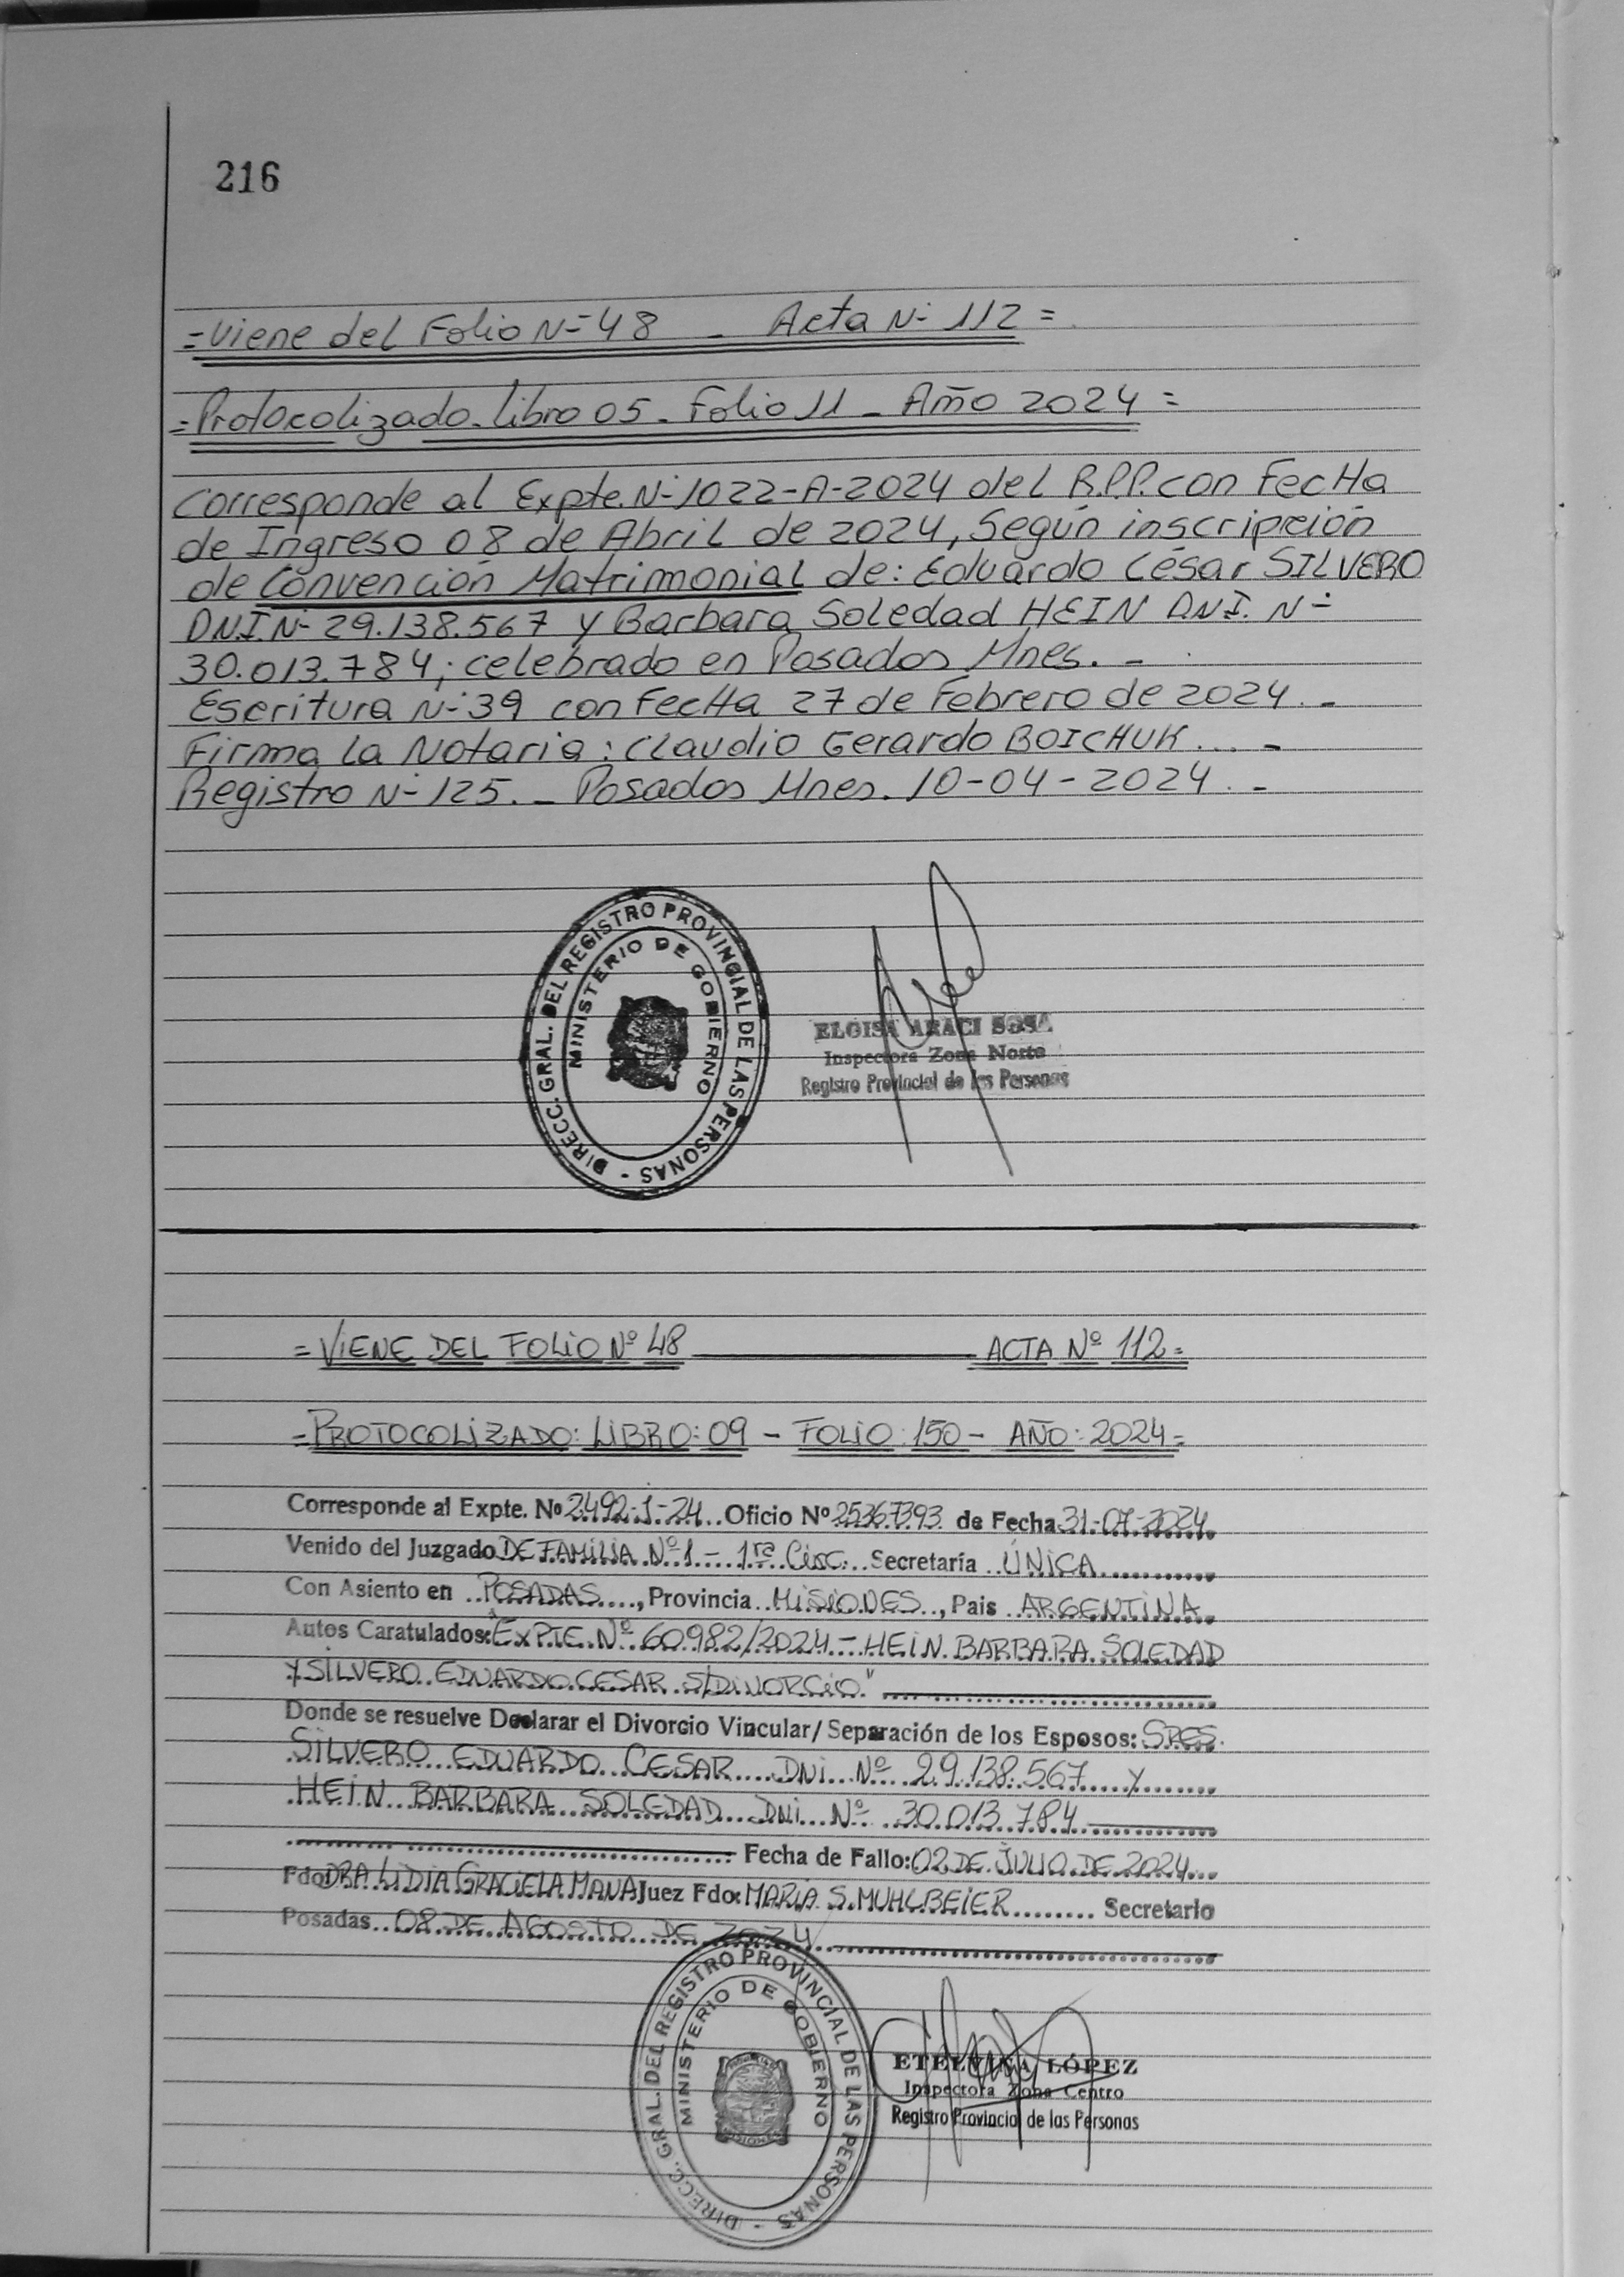 216
=Viene del Folio Nº 48 _ Acta Nº 112 =
=Protocolizado_Libro 05_Folio 11_Año 2024 =
Corresponde al Expte.Nº 1022-A-2024 del R.P.P. con FecHa
de Ingreso 08 de Abril de 2024, Según inscripción
de Convención Matrimonial de: Eduardo César SILVERO
DNI.Nº 29.138.567 y Barbara Soledad HEIN DNI. Nº
30.013.784; celebrado en Posadas Mnes. _
Escritura Nº 39 con FecHa 27 de Febrero de 2024. _
Firma la Notaria: Claudio Gerardo BOICHUK... _
Registro Nº 125._ Posadas Mnes. 10-04-2024. _
DIRECC. GRAL. DEL REGISTRO PROVINCIAL DE LAS PERSONAS -
MINISTERIO DE GOBIERNO
ELOISA ARACI SOSA
Inspectora Zona Norte
Registro Provincial de las Personas
=VIENE DEL FOLIO Nº 48 ACTA Nº 112=
=PROTOCOLIZADO: LIBRO: 09 - FOLIO: 150 - AÑO: 2024=
Corresponde al Expte. Nº 2492-J-24 Oficio Nº 25367393 de Fecha 31-07-2024
Venido del Juzgado DE FAMILIA Nº 1 - 1ra Circ. Secretaría ÚNICA
Con Asiento en POSADAS, Provincia MISIONES, Pais ARGENTINA
Autos Caratulados: "EXPTE. Nº 60982/2024 - HEIN BARBARA SOLEDAD
Y SILVERO EDUARDO CESAR S/DIVORCIO"
Donde se resuelve Declarar el Divorcio Vincular/Separación de los Esposos: SRES.
SILVERO EDUARDO CESAR DNI Nº 29.138.567 Y
HEIN BARBARA SOLEDAD DNI Nº 30.013.784
Fecha de Fallo: 02 DE JULIO DE 2024
Fdo: DRA LIDIA GRACIELA MANA Juez Fdo: MARIA S. MUHLBEIER Secretario
Posadas 08 DE AGOSTO DE 2024
DIRECC. GRAL. DEL REGISTRO PROVINCIAL DE LAS PERSONAS -
MINISTERIO DE GOBIERNO
MISIONES
ETELVINA LÓPEZ
Inspectora Zona Centro
Registro Provincial de las Personas